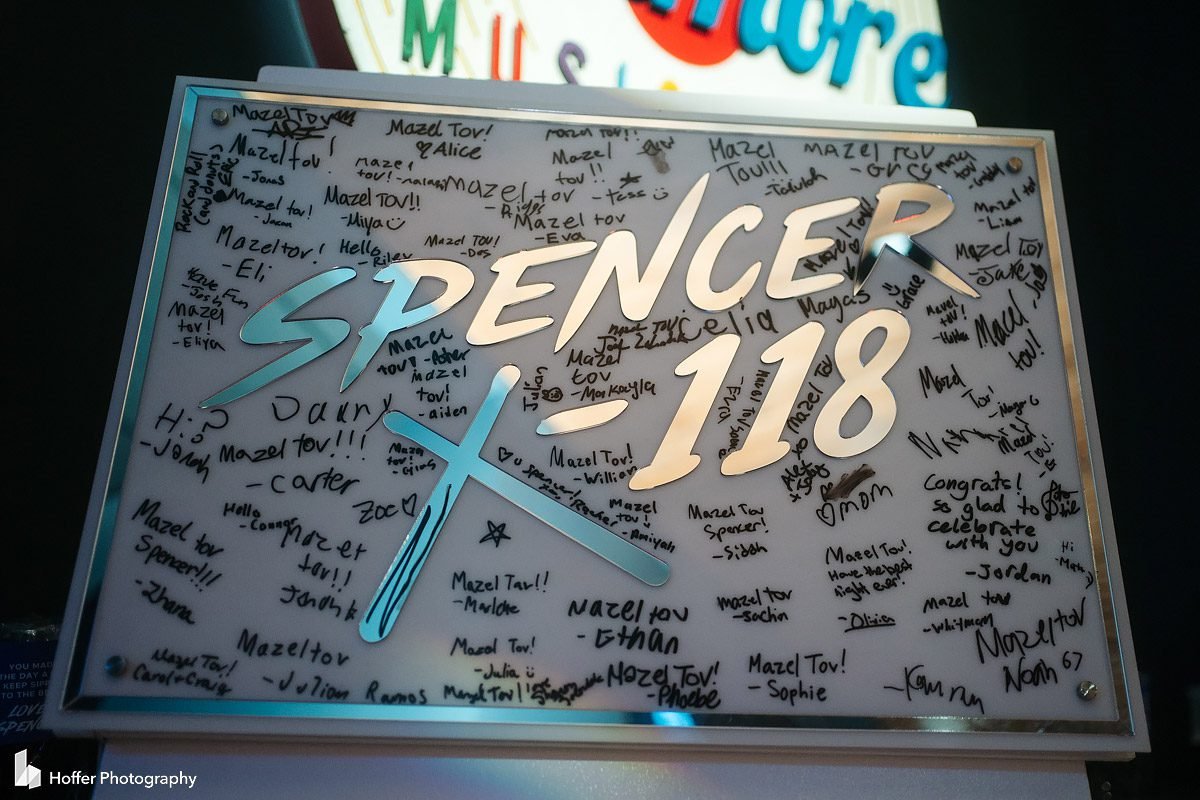 MUSI
more
SPENCER
X-118
Mazel Tov
Mazel Tov!
-Jonas
Rock and Roll
Mazel tov!
-Jacon
Mazel Tov!
♡Alice
mazel
tov!
Mazel Tov!!
-Miya
Mazel tov
Mazel Tov!!
Mazel
tov!!
-Tess
Mazel
Tov!!!
Mazel Tov
-Greg
Mazel
-Liam
Mazel Tov
-Jake
Mazel tov!
-Eli
Hello
-Riley
Mazel Tov!
-Des
Mazel tov
-Eva
Have Fun
-Josh
Mazel
tov!
-Eliya
Mazel
tov! -Asher
mazel
tov!
-aiden
Celia
Mazel
tov
-Markayla
Julian
Magas
Grace
Mazel
tov!
Hi?
-Jonah
Danny
Mazel Tov!!!
-Carter
Mazel Tov!
-William
Mazel
tov!
-Amiyah
Zoe♡
Hello
-Connor
Mazel
tov!!
Mazel tov
Spencer!!!
-Zhara
Mazel Tov
Spencer!
-Siddh
♡mom
Congrats!
so glad to
celebrate
with you
-Jordan
Hi
Mazel Tov!
Have the best
night ever!
-Olivia
Mazel Tav!!
-Marlote
Mazel tov
-Ethan
mazel tov
-Sachin
Mazel tov
-Whitman
Mazel tov
Noah 67
Mazel Tov!
Carol + Craig
Mazel tov
-Julian Ramos
Mazel Tov!
-Julia
Mazel Tov!
Mazel Tov!
-Phoebe
Mazel Tov!
-Sophie
-Kamryn
YOU MADE
THE DAY A
KEEP SIP
TO THE B
LOVE
SPENC
Hoffer Photography